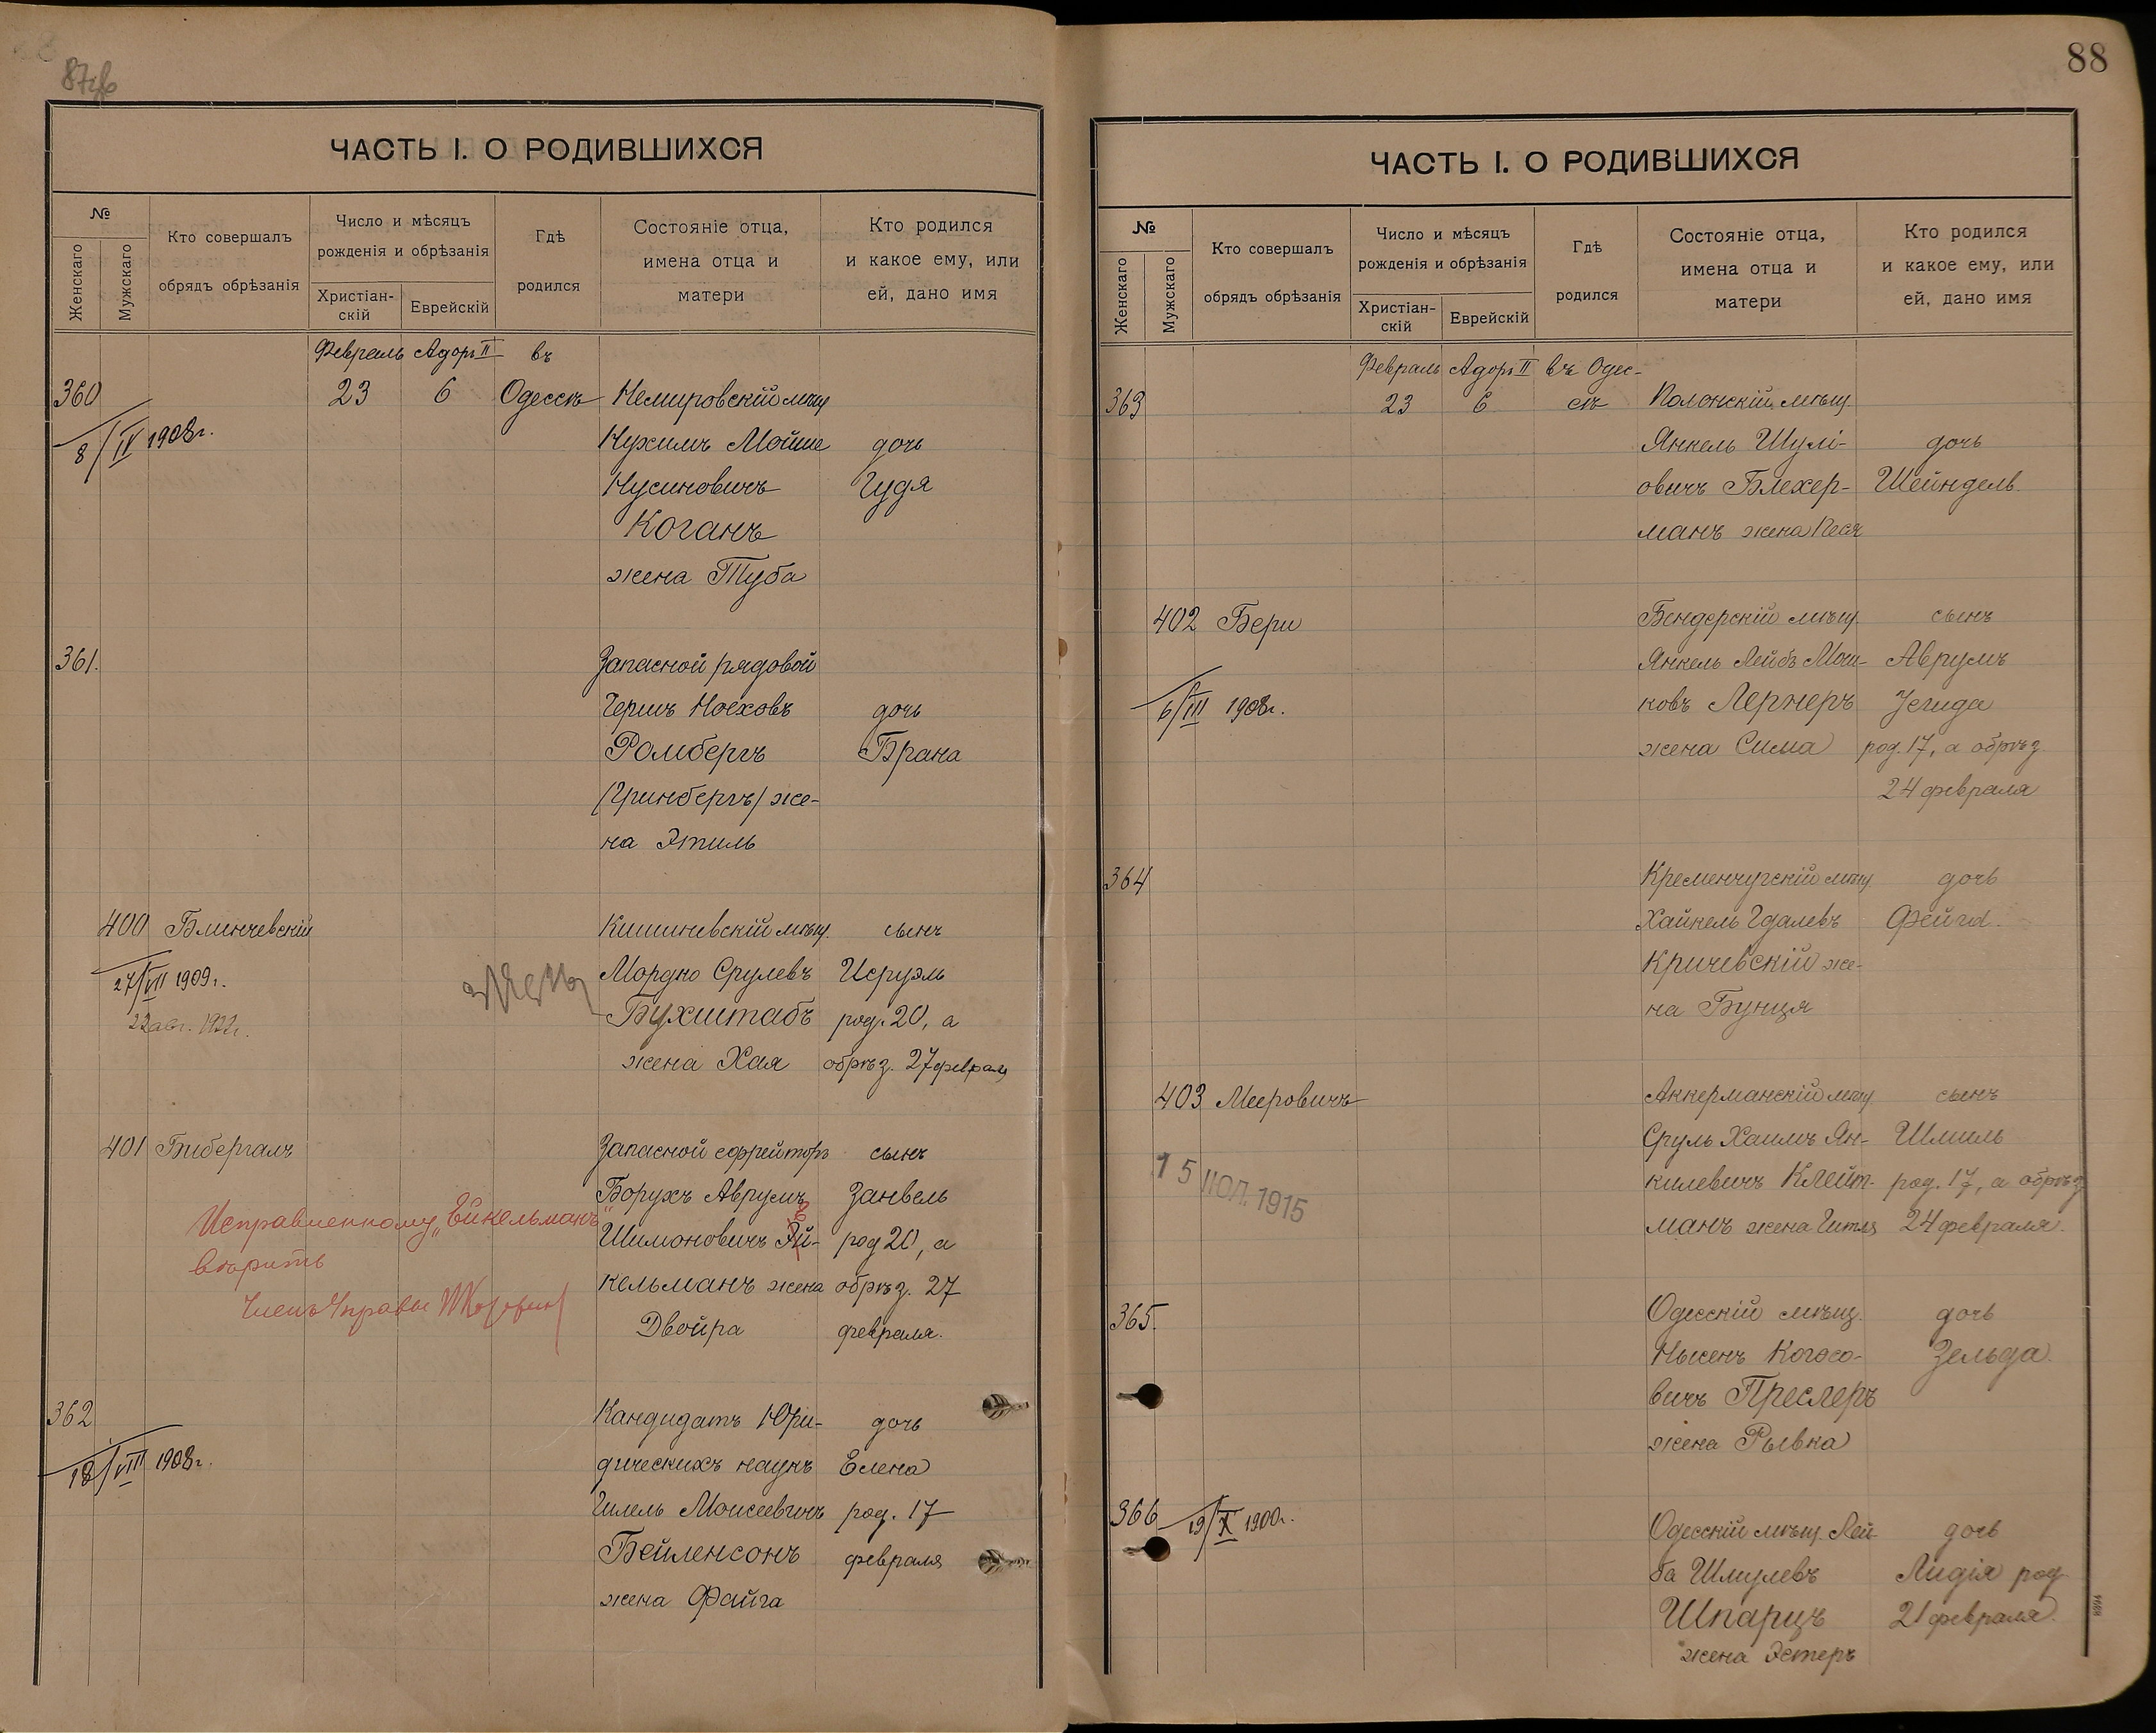 87об
ЧАСТЬ I. О РОДИВШИХСЯ
№
Женскаго
Мужскаго
Кто совершалъ
обрядъ обрѣзанія
Число и мѣсяцъ
рожденія и обрѣзанія
Христіан-
скій
Еврейскій
Гдѣ
родился
Состояніе отца,
имена отца и
матери
Кто родился
и какое ему, или
ей, дано имя
Февраль Адоръ II въ
360 23 6 Одессѣ Немировскій мѣщ
8/IV 1908г. Нухимъ Мойше дочь
Нусиновичъ Гудя
Коганъ
жена Туба
361. Запасной рядовой
Гершъ Ноеховъ дочь
Ромбергъ Брана
(Гринбергъ) же-
на Этиль
400 Блинчевскій Кишиневскій мѣщ. сынъ
27/VII 1909г. Мордко Срулевъ Исруэль
22 авг. 1922г. Бухштабъ род. 20, а
жена Хая обрѣз. 27 февраля
401 Гибергалъ Запасной ефрейторъ сынъ
Борухъ Аврумъ Занвель
Исправленному „Ейкельманъ“
Шимоновичъ Эй- род 20, а
вѣрить
кельманъ жена обрѣз. 27
Членъ Управы
Двойра февраля.
362 Кандидатъ Юри- дочь
18/VIII 1908г. дическихъ наукъ Елена
Гилель Моисеевичъ род. 17
Бейленсонъ февраля
жена Файга
88
ЧАСТЬ I. О РОДИВШИХСЯ
№
Женскаго
Мужскаго
Кто совершалъ
обрядъ обрѣзанія
Число и мѣсяцъ
рожденія и обрѣзанія
Христіан-
скій
Еврейскій
Гдѣ
родился
Состояніе отца,
имена отца и
матери
Кто родился
и какое ему, или
ей, дано имя
Февраль Адоръ II въ Одес-
363 23 6 сѣ Полонскій мѣщ.
Янкель Шулі- дочь
овичъ Блехер- Шейндель.
манъ жена Песя
402 Бери Бендерскій мѣщ. сынъ
Янкель Лейбъ Мош- Аврумъ
6/III 1908г. ковъ Лернеръ Іегида
жена Сима род. 17, а обрѣз.
24 февраля
364 Кременчугскій мѣщ дочь
Хайкель Гдалевъ Фейга.
Кричевскій же-
на Бунця
403 Мееровичъ Аккерманскій мѣщ сынъ
Сруль Хаимъ Ян- Шмиль
15 ІЮЛ. 1915 килевичъ Клейт- род. 17, а обрѣз
манъ жена Гитля 24 февраля.
365. Одесскій мѣщ. дочь
Нысенъ Когосо- Зельда.
вичъ Преслеръ
жена Рывка
366 19/X 1900г. Одесскій мѣщ. Лей- дочь
ба Шмулевъ Лидія род
Шпарцъ 21 февраля.
жена Эстеръ